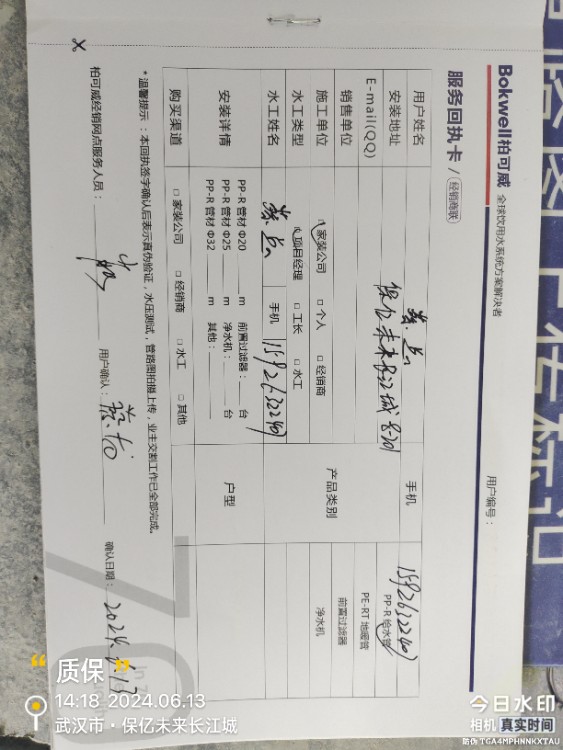 Bokwell柏可威 全球饮用水系统方案解决者
服务回执卡 / 经销商联
用户编号：
用户姓名
手机 15926322407
安装地址 保亿未来长江城 8-701
E-mail(QQ)
销售单位
产品类别
PP-R 给水管
PE-RT 地暖管
前置过滤器
净水机
施工单位 □ 家装公司 □ 个人 □ 经销商
水工类型 □ 项目经理 □ 工长 □ 水工
水工姓名
手机 15926322407
安装详情
PP-R 管材 Φ20 ____ m 前置过滤器：____ 台
PP-R 管材 Φ25 ____ m 净水机：____ 台
PP-R 管材 Φ32 ____ m 其他：____
户型
购买渠道 □ 家装公司 □ 经销商 □ 水工 □ 其他
* 温馨提示：本回执签字确认后表示真伪验证，水压测试，管路图拍摄上传，业主交割工作已全部完成。
柏可威经销网点服务人员：
用户确认：
确认日期：
质保
14:18 2024.06.13
武汉市·保亿未来长江城
今日水印
相机 真实时间
防伪 TGA4MPHNNKXTAU